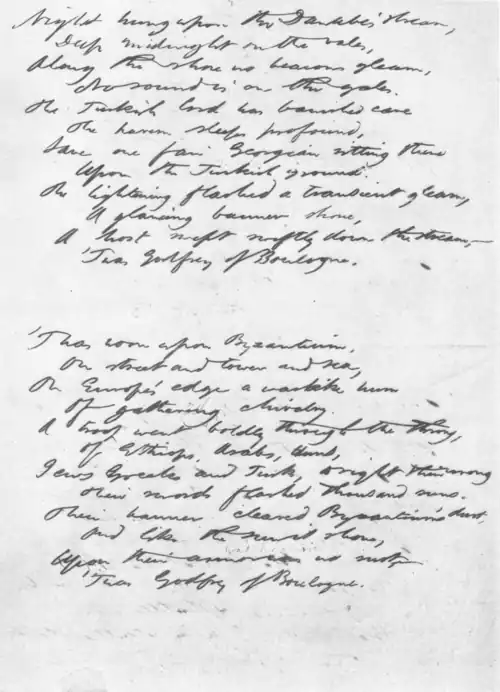 Night hung upon the Danube's stream,
Deep midnight on the vales,
Along the shore no beacons gleam,
No sound is on the gales.
The Turkish lord has banished care
The harem sleeps profound,
Save one fair Georgian sitting there
Upon the Turkish ground.
The lightning flashed a transient gleam,
A glancing banner shone,
A host swept swiftly down the stream,
'Twas Godfrey of Boulogne.
'Twas noon upon Byzantium,
On street and tower and sea,
On Europe's edge a warlike hum
Of gathering chivalry.
A troop went boldly through the throng,
Of Ethiops, Arabs, Huns,
Jews Greeks and Turk, to right their wrong
Their swords flashed thousand suns.
Their banner cleaved Byzantium's dust,
And like the sun it shone,
Upon their armor no rust,
'Twas Godfrey of Boulogne.